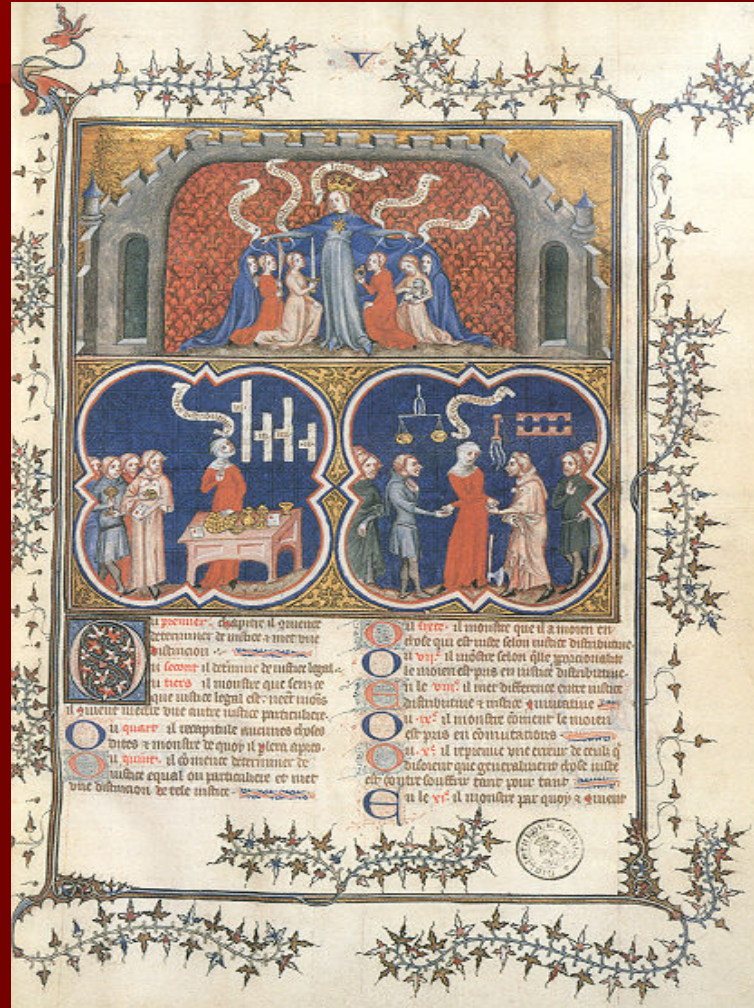 V
Ou premier. chapitre il 9mence
determiner de iustice & met une
distincion
Ou secont il determine de iustice legal.
Ou tiers il monstre que senz ce
que iustice legal est. neant moins
il 9vient mectre une autre iustice particuliere.
Ou quart il recapitule aucunes choses
dites & monstre de quoy il plera apres.
Ou quint. il 9mence determiner de
iustice equal ou particuliere et met
une distincion de tele iustice.
Ou siste. il monstre que il a moien en
chose qui est iuste selon iustice distributive.
Ou vii.e il monstre selon qlle proporcionalite
le moien est pris en iustice distributive.
En le viii.e il met difference entre iustice
distributive & iustice 9mutative
Ou ix.e il monstre coment le moien
est pris en comutacions
Ou x.e il repreuve une erreur de ceulx q
disoient que generalment chose iuste
est contre souffrir tant pour tant
En le xi.e il monstre par quoy 9vient